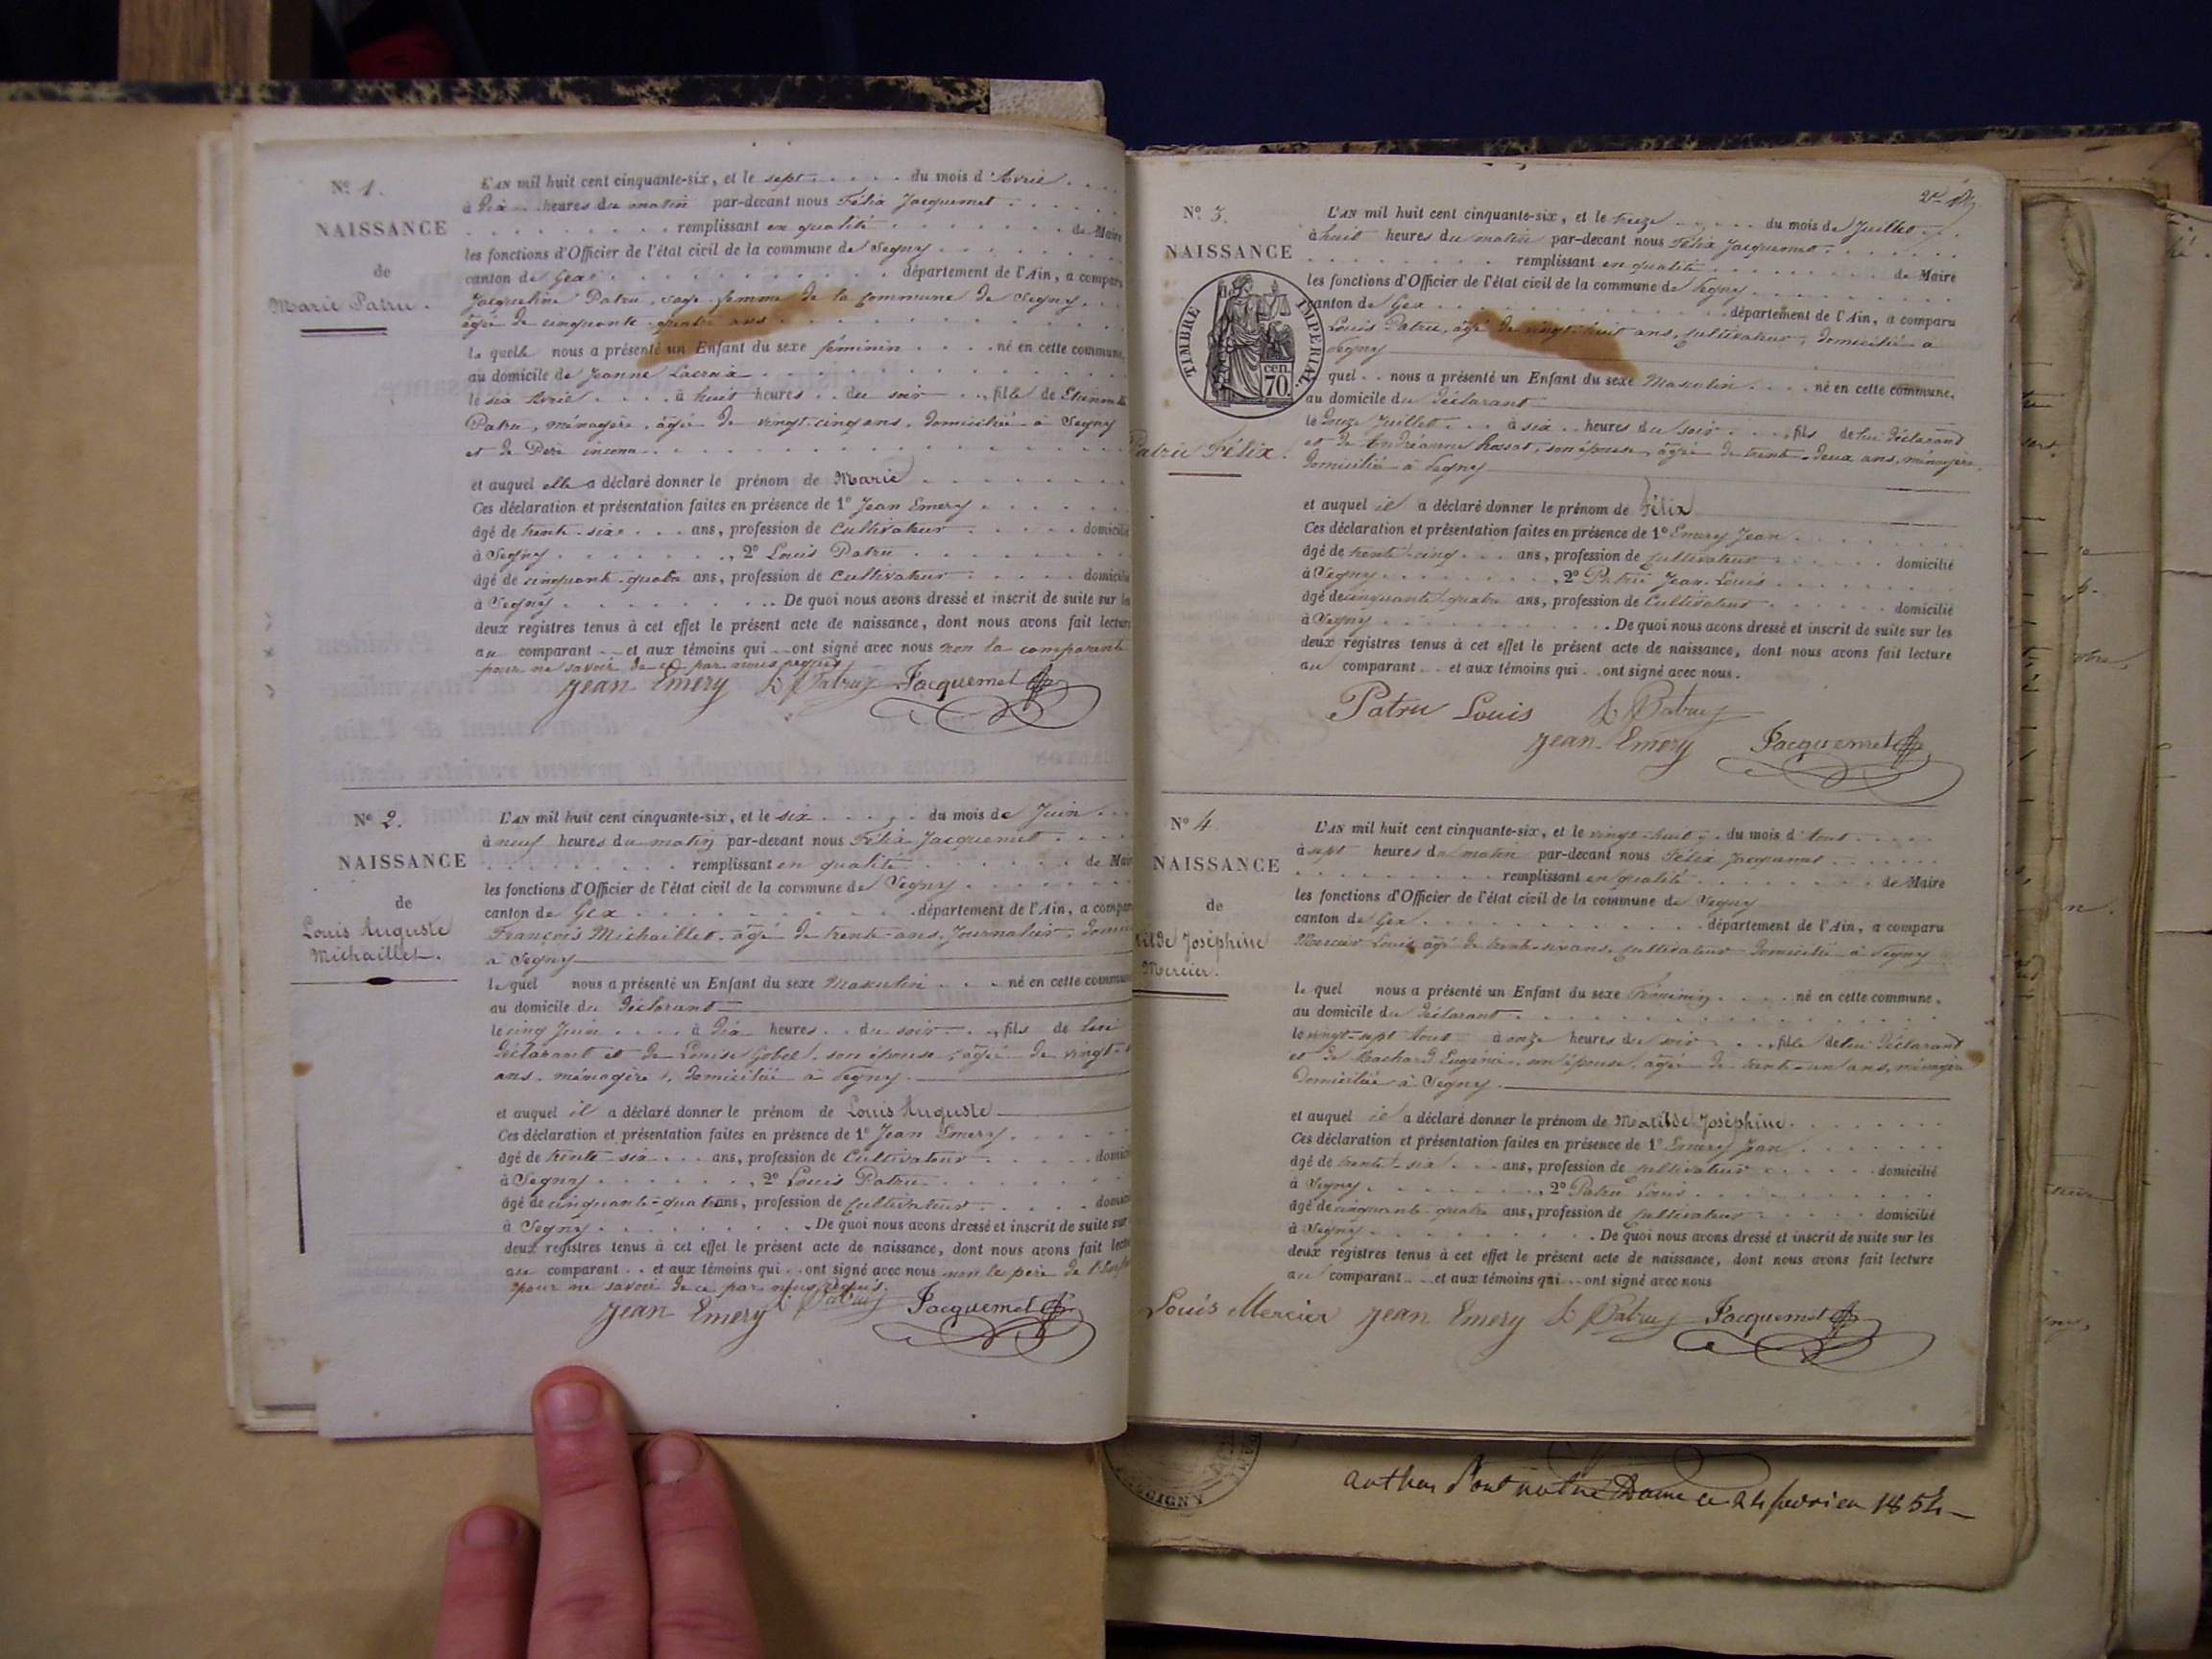 Nº 1.
NAISSANCE
de
Marie Patru.
L'AN mil huit cent cinquante-six, et le sept du mois d'Avril
à dix heures du matin par-devant nous Félix Jacquemet
remplissant en qualité de Maire
les fonctions d'Officier de l'état civil de la commune de Segny
canton de Gex département de l'Ain, a compar
Jacqueline Patru, sage-femme de la commune de Segny,
âgée de cinquante-quatre ans
la quelle nous a présenté un Enfant du sexe féminin né en cette commune,
au domicile de Jeanne Lacroix
le six Avril à huit heures du soir, fille de Etiennette
Patru, ménagère, âgée de vingt-cinq ans, domiciliée à Segny
et de Père inconu
et auquel elle a déclaré donner le prénom de Marie
Ces déclaration et présentation faites en présence de 1º Jean Emery
âgé de trente-six ans, profession de Cultivateur domicilié
à Segny, 2º Louis Patru
âgé de cinquante-quatre ans, profession de Cultivateur domicilié
à Segny. De quoi nous avons dressé et inscrit de suite sur les
deux registres tenus à cet effet le présent acte de naissance, dont nous avons fait lecture
au comparant et aux témoins qui ont signé avec nous non la comparante
pour ne savoir de ce par nous requis
Jean Emery L Patru Jacquemet
Nº 2.
NAISSANCE
de
Louis Auguste
Michaillet.
L'AN mil huit cent cinquante-six, et le six du mois de Juin
à neuf heures du matin par-devant nous Félix Jacquemet
remplissant en qualité de Mair
les fonctions d'Officier de l'état civil de la commune de Segny
canton de Gex département de l'Ain, a compar
François Michaillet, âgé de trente ans, Journalier, domi
à Segny
le quel nous a présenté un Enfant du sexe Masculin né en cette commun
au domicile du déclarant
le cinq Juin à dix heures du soir, fils de lui
déclarant et de Louise Gobel, son épouse, âgée de vingt-
ans, ménagère, domiciliée à Segny.
et auquel il a déclaré donner le prénom de Louis Auguste
Ces déclaration et présentation faites en présence de 1º Jean Emery
âgé de trente-six ans, profession de Cultivateur domic
à Segny, 2º Louis Patru
âgé de cinquante-quatre ans, profession de Cultivateur domic
à Segny. De quoi nous avons dressé et inscrit de suite sur
deux registres tenus à cet effet le présent acte de naissance, dont nous avons fait lectu
au comparant et aux témoins qui ont signé avec nous non le père de l'Enfa
pour ne savoir de ce par nous requis.
Jean Emery L Patru Jacquemet
Nº 3.
NAISSANCE
TIMBRE IMPERIAL.
70. cen
Patru Félix.
L'AN mil huit cent cinquante-six, et le treize du mois de Juillet
à huit heures du matin par-devant nous Félix Jacquemet
remplissant en qualité de Maire
les fonctions d'Officier de l'état civil de la commune de Segny
canton de Gex département de l'Ain, a comparu
Louis Patru, âgé de vingt-huit ans, Cultivateur, domicilié à
Segny
quel nous a présenté un Enfant du sexe Masculin né en cette commune,
au domicile du déclarant
le douze Juillet à six heures du soir, fils de lui déclarand
et de Andréanne son épouse, âgée de trente-deux ans, ménagère,
domiciliée à Segny
et auquel il a déclaré donner le prénom de Félix
Ces déclaration et présentation faites en présence de 1º Emery Jean
âgé de trente-cinq ans, profession de Cultivateur domicilié
à Segny, 2º Patru Jean-Louis
âgé de cinquante-quatre ans, profession de Cultivateur domicilié
à Segny. De quoi nous avons dressé et inscrit de suite sur les
deux registres tenus à cet effet le présent acte de naissance, dont nous avons fait lecture
au comparant et aux témoins qui ont signé avec nous.
Patru Louis L Patru
Jean Emery Jacquemet
Nº 4.
NAISSANCE
de
tilde Joséphine
Mercier.
L'AN mil huit cent cinquante-six, et le vingt-huit du mois d'Aout
à sept heures du matin par-devant nous Félix Jacquemet
remplissant en qualité de Maire
les fonctions d'Officier de l'état civil de la commune de Segny
canton de Gex département de l'Ain, a comparu
Mercier Louis, âgé de trente-six ans, Cultivateur domicilié à Segny
le quel nous a présenté un Enfant du sexe Féminin né en cette commune,
au domicile du déclarant
le vingt-sept Aout à onze heures du soir, fille de lui déclarand
et de Eugénie, son épouse, âgée de trente-un ans, ménagère
domiciliée à Segny.
et auquel il a déclaré donner le prénom de Matilde Joséphine
Ces déclaration et présentation faites en présence de 1º Emery Jean
âgé de trente-six ans, profession de Cultivateur domicilié
à Segny, 2º Patru Louis
âgé de cinquante-quatre ans, profession de Cultivateur domicilié
à Segny. De quoi nous avons dressé et inscrit de suite sur les
deux registres tenus à cet effet le présent acte de naissance, dont nous avons fait lecture
au comparant et aux témoins qui ont signé avec nous
Louis Mercier Jean Emery L Patru Jacquemet
24 fevrier 1854